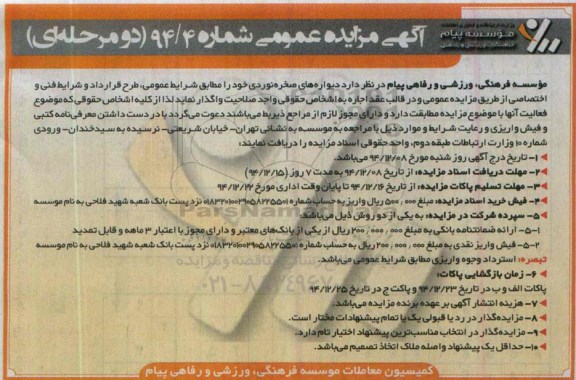 وزارت ارتباطات و فناوری اطلاعات
مؤسسه پیام
فرهنگی، ورزشی و رفاهی
آگهی مزایده عمومی شماره ۹۴/۴ (دو مرحله‌ای)
مؤسسه فرهنگی، ورزشی و رفاهی پیام در نظر دارد دیواره‌های صخره‌نوردی خود را مطابق شرایط عمومی، طرح قرارداد و شرایط فنی و
اختصاصی از طریق مزایده عمومی و در قالب عقد اجاره به اشخاص حقوقی واجد صلاحیت واگذار نماید لذا از کلیه اشخاص حقوقی که موضوع
فعالیت آنها با موضوع مزایده مطابقت دارد و دارای مجوز لازم از مراجع ذیربط می‌باشند دعوت می‌گردد با در دست داشتن معرفی‌نامه کتبی
و فیش واریزی و رعایت شرایط و موارد ذیل با مراجعه به موسسه به نشانی تهران- خیابان شریعتی- نرسیده به سیدخندان- ورودی
شماره ۱۰ وزارت ارتباطات طبقه دوم، واحد حقوقی اسناد مزایده را دریافت نمایند:
۱- تاریخ درج آگهی روز شنبه مورخ ۹۴/۱۲/۰۸ می‌باشد.
۲- مهلت دریافت اسناد مزایده: از تاریخ ۹۴/۱۲/۰۸ به مدت ۷ روز (۹۴/۱۲/۱۵)
۳- مهلت تسلیم پاکات مزایده: از تاریخ ۹۴/۱۲/۱۶ تا پایان وقت اداری مورخ ۹۴/۱۲/۲۲
۴- فیش خرید اسناد مزایده: مبلغ ۵۰۰،۰۰۰ ریال واریز به حساب شماره نزد پست بانک شعبه شهید فلاحی به نام موسسه
۵- سپرده شرکت در مزایده: به یکی از دو روش ذیل می‌باشد
۵-۱- ارائه ضمانتنامه بانکی به مبلغ ۲۰۰،۰۰۰،۰۰۰ ریال از یکی از بانک‌های معتبر و دارای مجوز با اعتبار ۳ ماهه و قابل تمدید
۵-۲- فیش واریز نقدی به مبلغ ۲۰۰،۰۰۰،۰۰۰ ریال به حساب شماره نزد پست بانک شعبه شهید فلاحی به نام موسسه
تبصره: استرداد وجوه واریزی مطابق شرایط عمومی می‌باشد.
۶- زمان بازگشایی پاکات:
پاکات الف و ب در تاریخ ۹۴/۱۲/۲۳ و پاکت ج در تاریخ ۹۴/۱۲/۲۵
۷- هزینه انتشار آگهی بر عهده برنده مزایده می‌باشد.
۸- مزایده‌گذار در رد یا قبولی یک یا تمام پیشنهادات مختار است.
۹- مزایده‌گذار در انتخاب مناسب‌ترین پیشنهاد اختیار تام دارد.
۱۰- حداقل یک پیشنهاد واصله ملاک اتخاذ تصمیم می‌باشد.
کمیسیون معاملات موسسه فرهنگی، ورزشی و رفاهی پیام